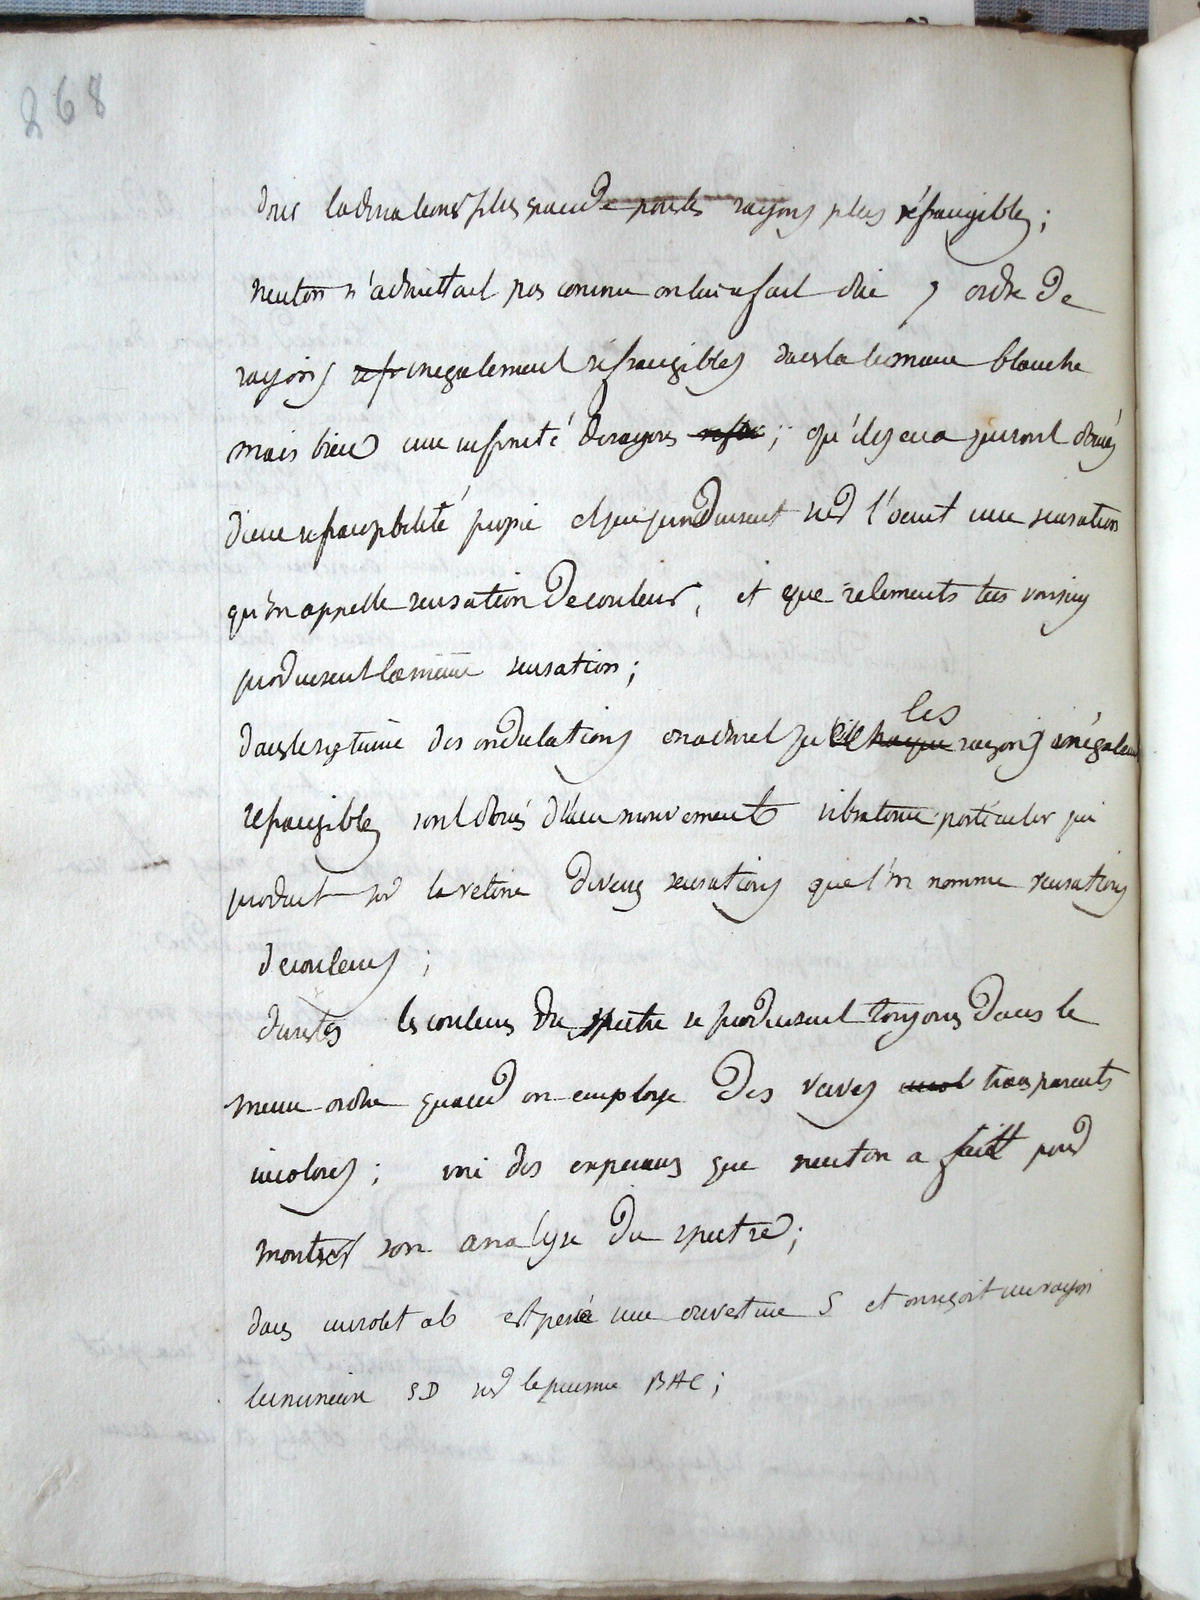 268
donc la déviation est plus grande pour les rayons plus réfrangibles;
neuton n'admettait pas comme on lui a fait dire 7 ordre de
rayons refr inegalement réfrangibles dans la lumiere blanche
mais bien une infinité de rayons ; qu'il y en a qui sont doués
d'une refrangibilité propre et qui produisent sur l'oeuil une sensation
qu'on appelle sensation de couleur, et que élements très voisins
produisent la même sensation;
dans le systeme des ondulations on admet que chaque les rayons inégalem
refrangibles sont doués d'un mouvement vibratoire particulier qui
produit sur la retine diverses sensations que l'on nomme sensations
de couleurs ;
les couleurs du spectre se produisent toujours dans le
meme ordre quand on employe des verres transparents
incolores ; voici des experiences que neuton a fait pour
montrer son analyse du spectre;
dans un volet ab est percée une ouverture S et on reçoit un rayon
lumineux SD sur le prisme BAC;